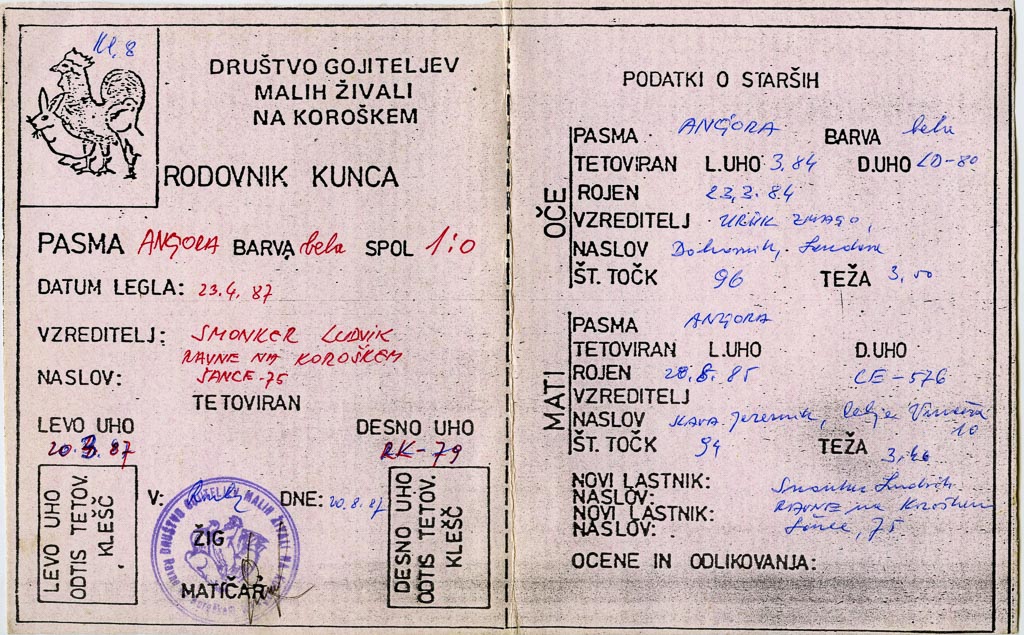 DRUŠTVO GOJITELJEV
MALIH ŽIVALI
NA KOROŠKEM
RODOVNIK KUNCA
PASMA ANGORA BARVA bela SPOL 1:0
DATUM LEGLA: 23.4. 87
VZREDITELJ: SMONKER LUDVIK
RAVNE NA KOROŠKEM
NASLOV: ŠANCE-75
TETOVIRAN
LEVO UHO DESNO UHO
87 RK-79
LEVO UHO
ODTIS TETOV.
KLEŠČ
V: DNE: 20.8.87
ŽIG
MATIČAR
DESNO UHO
ODTIS TETOV.
KLEŠČ
PODATKI O STARŠIH
OČE
PASMA ANGORA BARVA bela
TETOVIRAN L.UHO 3.84 D.UHO LD-80
ROJEN 23.3.84
VZREDITELJ
NASLOV
ŠT. TOČK 96 TEŽA 3,00
MATI
PASMA ANGORA
TETOVIRAN L.UHO D.UHO
ROJEN 85 CE-576
VZREDITELJ
NASLOV Jezernik, Celje
10
ŠT. TOČK 94 TEŽA
NOVI LASTNIK: Ludvik
NASLOV: RAVNE na Koroškem
NOVI LASTNIK:
NASLOV: Šance, 75
OCENE IN ODLIKOVANJA: